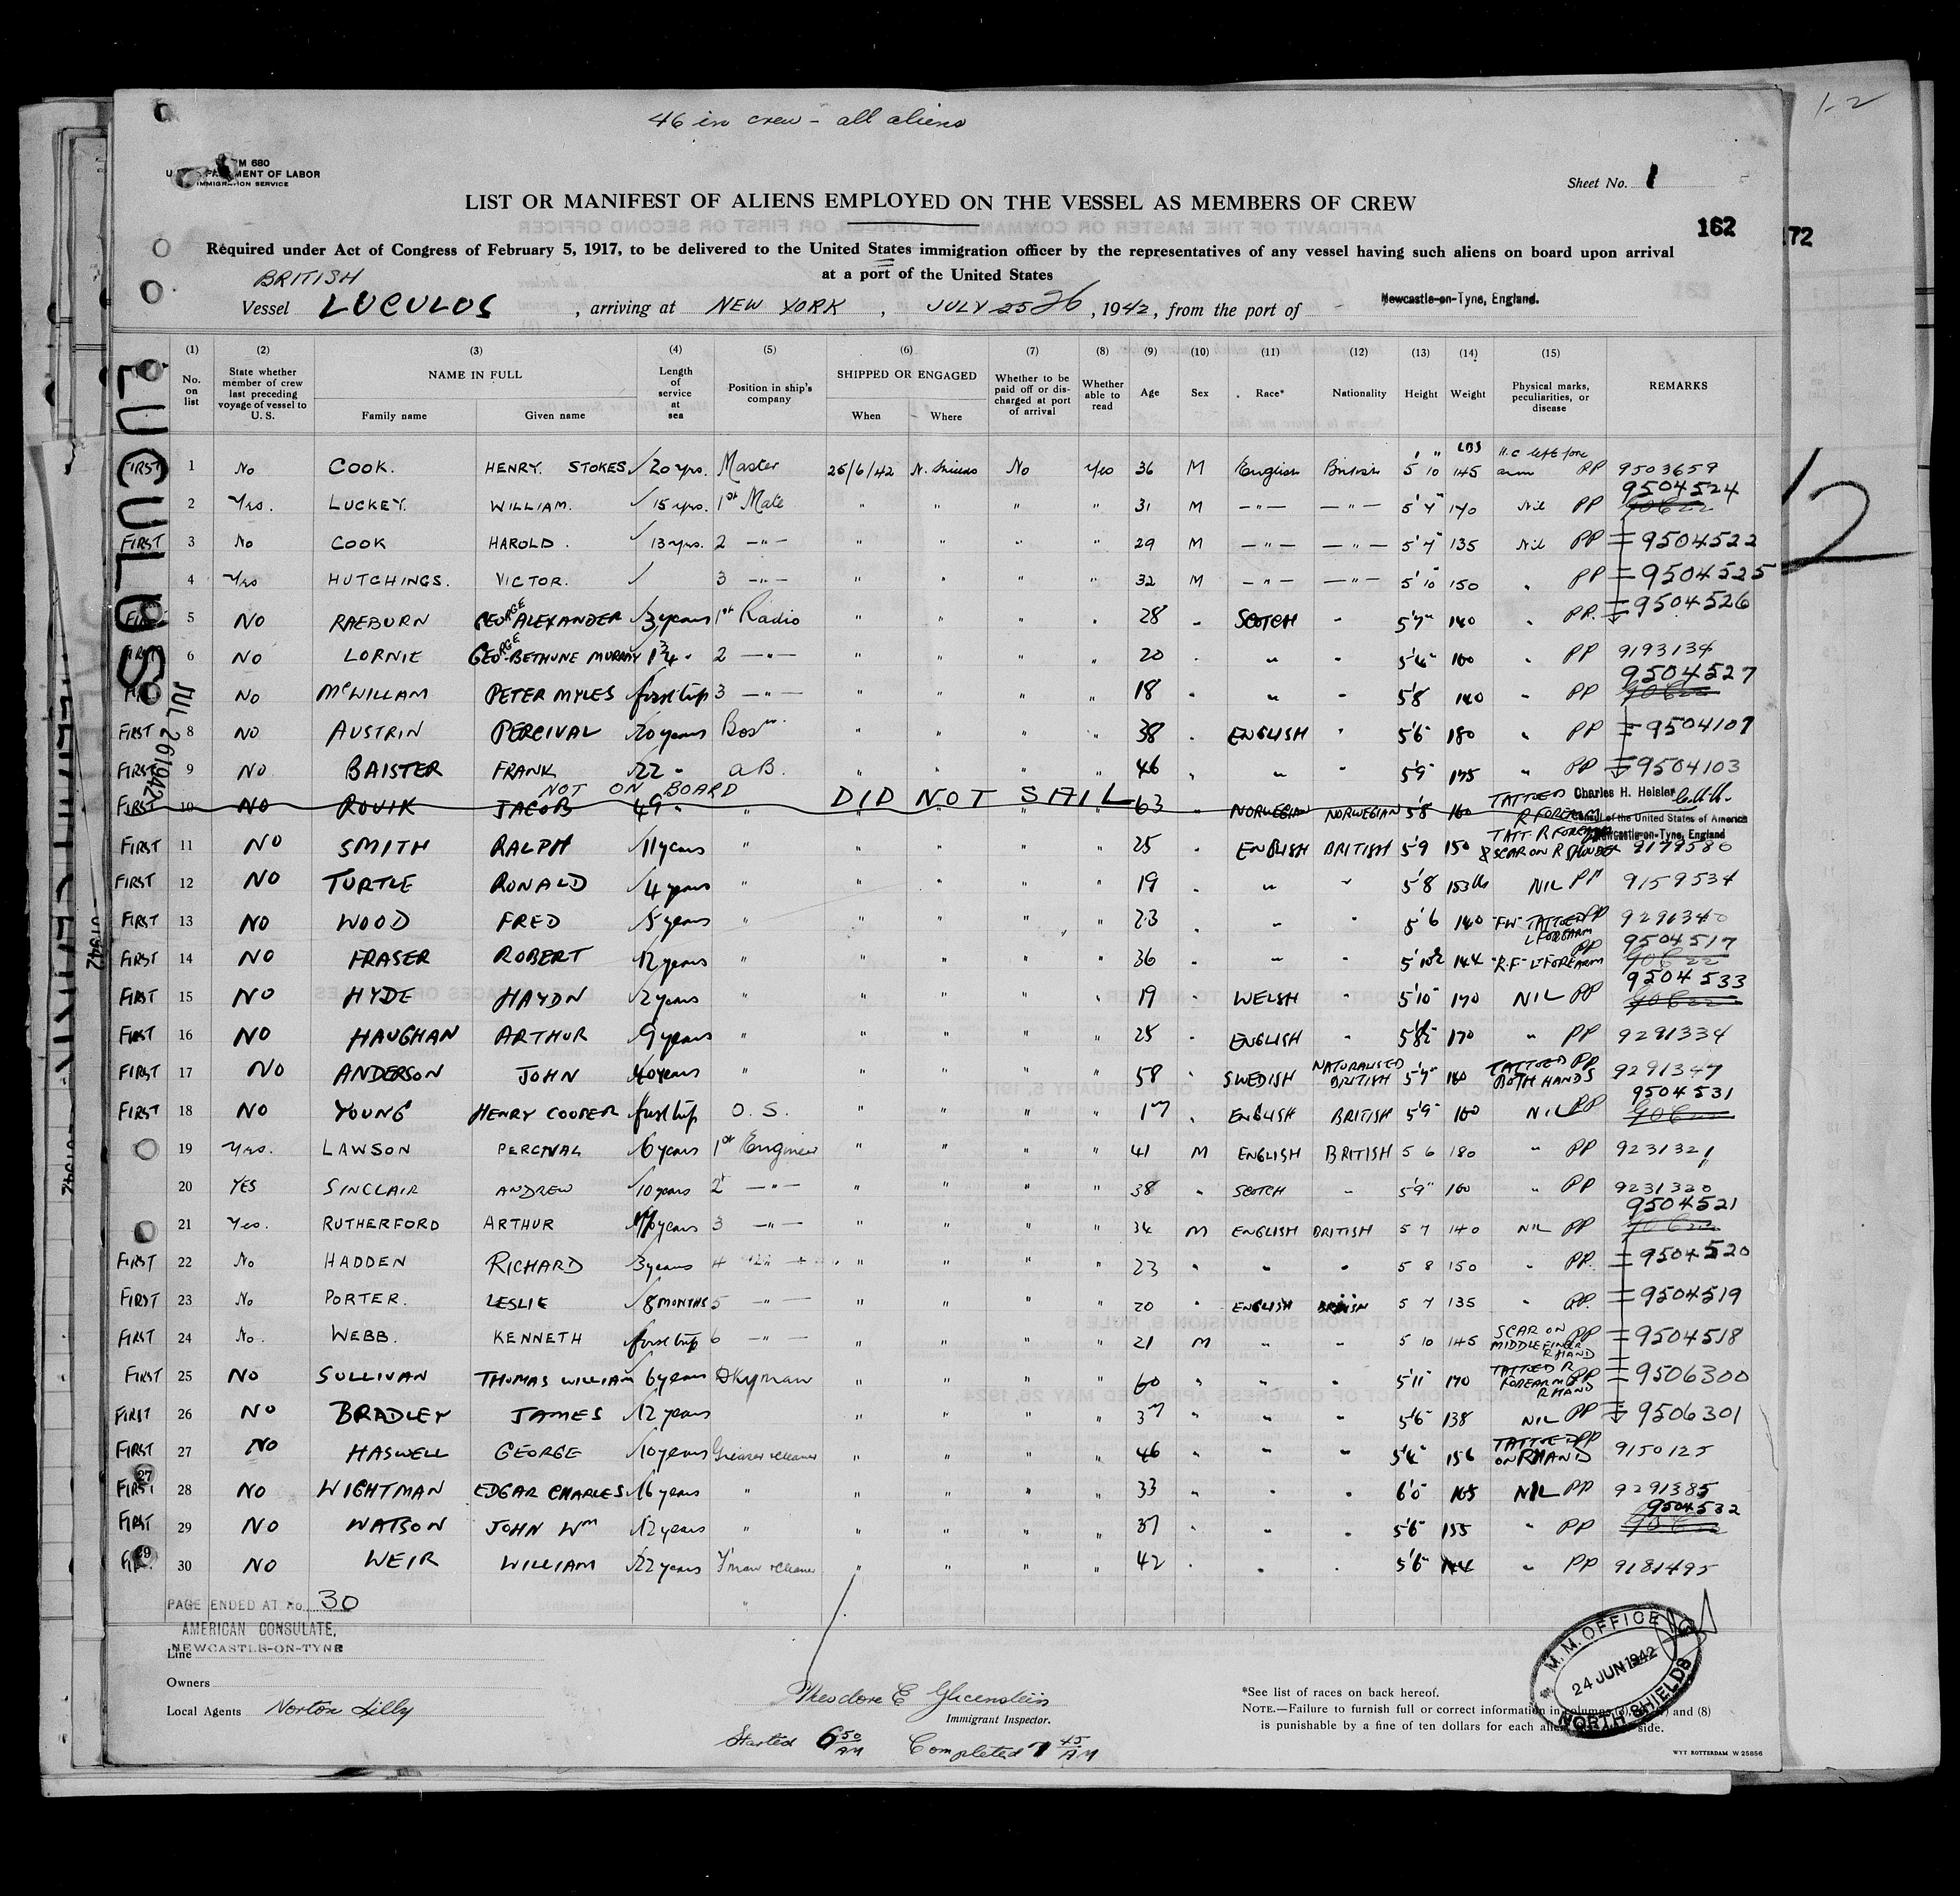 46 in crew - all aliens
1-2
M 680
MENT OF LABOR
IMMIGRATION SERVICE
Sheet No. 1
LIST OR MANIFEST OF ALIENS EMPLOYED ON THE VESSEL AS MEMBERS OF CREW
162
172
Required under Act of Congress of February 5, 1917, to be delivered to the United States immigration officer by the representatives of any vessel having such aliens on board upon arrival
at a port of the United States
BRITISH
Vessel LUCULUS, arriving at NEW YORK, JULY 25 26, 1942, from the port of Newcastle-on-Tyne, England.
LUCULUS
JUL 26 1942
12
(1) (2) (3) (4) (5) (6) (7) (8) (9) (10) (11) (12) (13) (14) (15)
No. on list State whether member of crew last preceding voyage of vessel to U. S. NAME IN FULL Family name Given name Length of service at sea Position in ship's company SHIPPED OR ENGAGED When Where Whether to be paid off or discharged at port of arrival Whether able to read Age Sex Race* Nationality Height Weight Physical marks, peculiarities, or disease REMARKS
FIRST 1 No COOK. HENRY STOKES 20 yrs. Master 25/6/42 N. Shields No Yes 36 M English British 5' 10" 145 LBS H.C left fore arm PP 9503659
2 Yes. LUCKEY. WILLIAM. 15 yrs. 1st Mate " " " " 31 M -"- -"- 5'7" 140 Nil PP 9504524
FIRST 3 No COOK HAROLD. 13 yrs. 2 -"- " " " " 29 M -"- -"- 5'7" 135 Nil PP 9504522
4 Yes HUTCHINGS. VICTOR. 3 -"- " " " " 32 M -"- -"- 5'10" 150 " PP 9504525
FIRST 5 NO RAEBURN GEORGE ALEXANDER 3 years 1st Radio " " " " 28 " SCOTCH " 5'7" 140 " PP. 9504526
FIRST 6 NO LORNIE GEORGE BETHUNE MURRAY 1 3/4 " 2 -"- " " " " 20 " " " 160 " PP 9193134
7 NO McWILLAM PETER MYLES first trip 3 -"- " " " " 18 " " " 5'8 140 " PP 9504527
FIRST 8 NO AUSTRIN PERCIVAL 20 years Bosn. " " " " 38 " ENGLISH " 5'6" 180 " PP 9504107
FIRST 9 NO BAISTER FRANK 22 " A.B. " " " " 46 " " " 5'9" 175 " PP 9504103
NOT ON BOARD DID NOT SAIL
FIRST 10 NO ROVIK JACOB 49 " " " " 63 NORWEGIAN NORWEGIAN 5'8 160 TATTOED R FOREARM Charles H. Heisler
Consul of the United States of America
Newcastle-on-Tyne, England
FIRST 11 NO SMITH RALPH 11 years " " " " " 25 " ENGLISH BRITISH 5'9 150 TATT. R FOREARM & SCAR ON R SHOULDER 9179580
FIRST 12 NO TURTLE RONALD 4 years " " " " " 19 " " " 5'8 153 lbs NIL PP 9159534
FIRST 13 NO WOOD FRED 5 years " " " " " 23 " " " 5'6 140 "FW" TATTOED L FOREARM PP 9291340
FIRST 14 NO FRASER ROBERT 12 years " " " " " 36 " " " 5'10½ 144 "R.F" L FOREARM PP 9504517
FIRST 15 NO HYDE HAYDN 2 years " " " " " 19 " WELSH " 5'10" 170 NIL PP 9504533
FIRST 16 NO HAUGHAN ARTHUR 9 years " " " " " 25 " ENGLISH " 5'8½" 170 " PP 9291334
FIRST 17 NO ANDERSON JOHN 40 years " " " " " 58 " SWEDISH NATURALISED BRITISH 5'7" 180 TATTOED BOTH HANDS PP 9291347
FIRST 18 NO YOUNG HENRY COOPER first trip O.S. " " " " 17 " ENGLISH BRITISH 5'9" 160 NIL PP 9504531
19 Yes. LAWSON PERCIVAL 6 years 1st Engineer " " " " 41 M ENGLISH BRITISH 5 6 180 " PP 9231321
20 YES SINCLAIR ANDREW 10 years 2 -"- " " " " 38 " SCOTCH " 5'9" 160 " PP 9231320
21 Yes. RUTHERFORD ARTHUR years 3 -"- " " " " 34 M ENGLISH BRITISH 5 7 140 NIL PP 9504521
FIRST 22 No HADDEN RICHARD 3 years 4 -"- " " " " 23 " " " 5 8 150 " PP. 9504520
FIRST 23 No PORTER. LESLIE 8 MONTHS 5 -"- " " " " 20 " ENGLISH BRITISH 5 7 135 " PP. 9504519
FIRST 24 No. WEBB. KENNETH first trip 6 -"- " " " " 21 M " " 5 10 145 SCAR ON MIDDLE FINGER R HAND PP 9504518
FIRST 25 NO SULLIVAN THOMAS WILLIAM 6 years Dkyman " " " " 60 " " " 5'11" 170 TATTOED R FOREARM R HAND PP 9506300
FIRST 26 NO BRADLEY JAMES 12 years " " " " 37 " " " 5'6" 138 NIL PP 9506301
FIRST 27 NO HASWELL GEORGE 10 years Greaser & cleaner " " " " 46 " " " 156 TATTOED ON R HAND PP 9150125
27
FIRST 28 NO WIGHTMAN EDGAR CHARLES 16 years " " " " " 33 " " " 6'0" 165 NIL PP 9291385
FIRST 29 NO WATSON JOHN Wm 12 years " " " " " 37 " " " 5'6" 155 " PP 9504532
29
30 NO WEIR WILLIAM 22 years F'man & cleaner " " " " 42 " " " 5'6" " PP 9181495
PAGE ENDED AT No. 30
AMERICAN CONSULATE,
NEWCASTLE-ON-TYNE
Line
Owners
Local Agents Norton Lilly
Theodore E Glicenstein
Immigrant Inspector.
Started 6 50 AM Completed 7 45 AM
*See list of races on back hereof.
NOTE.—Failure to furnish full or correct information in columns and (8)
is punishable by a fine of ten dollars for each alien side.
M.M. OFFICE
24 JUN 1942
NORTH SHIELDS
WYT ROTTERDAM W 25856